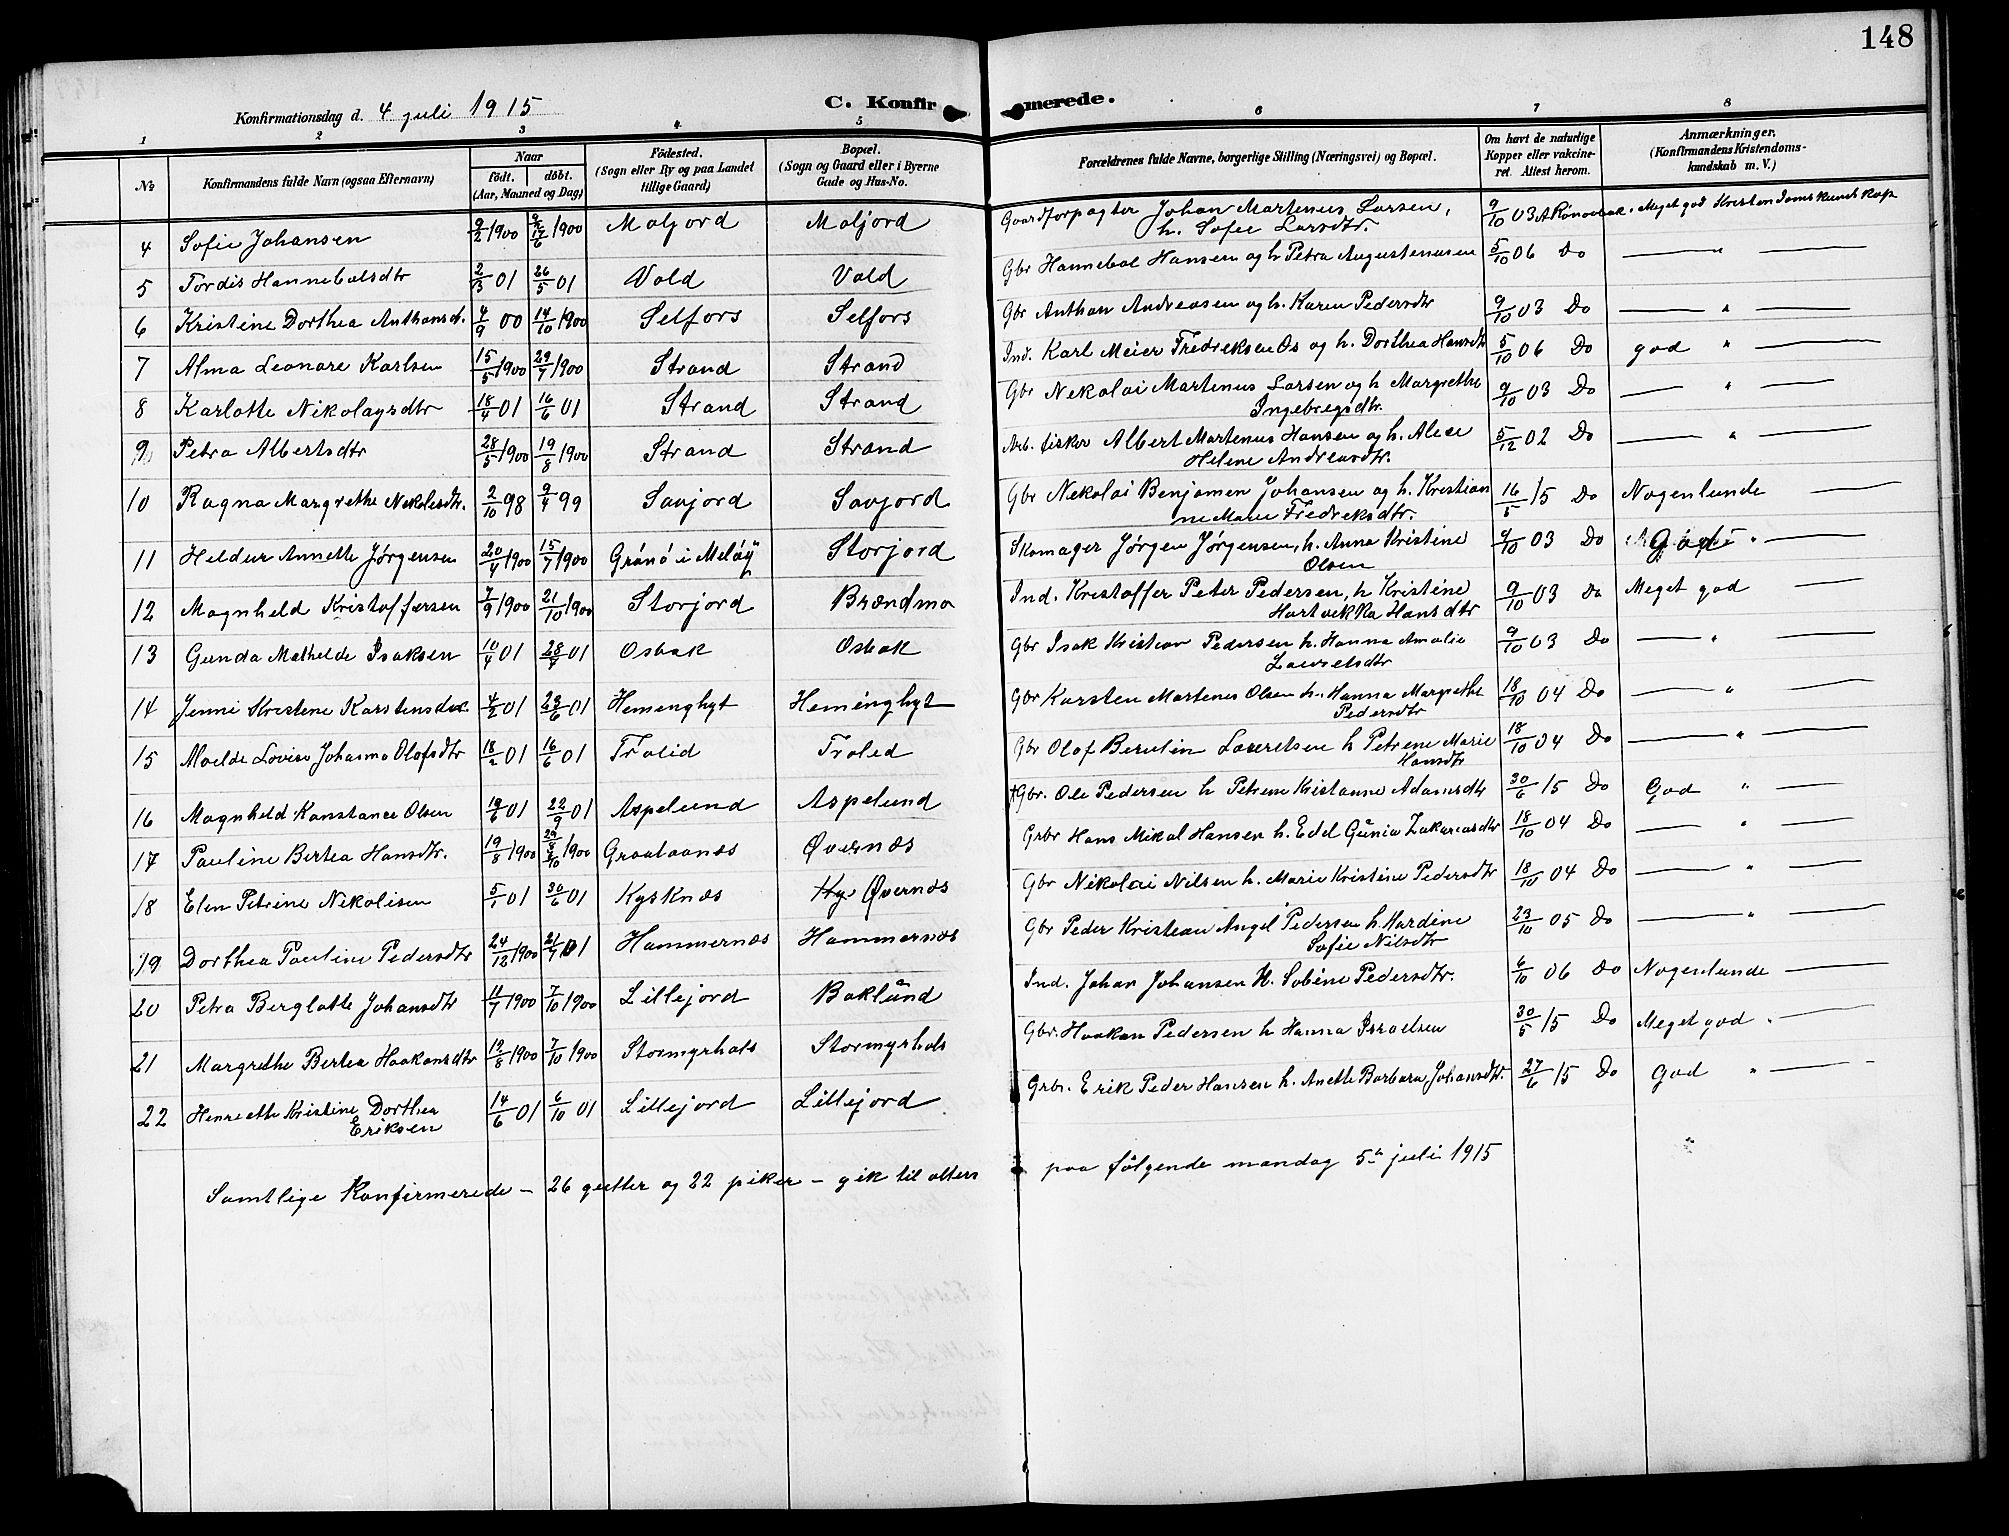 148
Konfirmationsdag d. 4 juli 1915 C. Konfirmerede.
1 2 3 4 5 6 7 8
№ Konfirmandens fulde Navn (ogsaa Efternavn) Naar født. døbt. (Aar, Maaned og Dag) Fødested. (Sogn eller By og paa Landet tillige Gaard) Bopæl. (Sogn og Gaard eller i Byerne Gade og Hus-No. Forældrenes fulde Navne, borgerlige Stilling (Næringsvei) og Bopæl. Om havt de naturlige Kopper eller vakcineret. Attest herom. Anmærkninger. (Konfirmandens Kristendomskundskab m. V.)
4 Sofie Johansen 9/2 1900 1900 Moljord Moljord Gaardforpagter Johan Martenus Larsen, h. Sofie Larsdtr. 9/10 03 Meget god Kristendomskundskap
5 Tordis Hannebalsdtr 2/3 01 26/5 01 Vold Vold Gbr Hannebal Hansen og h Petra Augustenusen 5/10 06 Do — " —
6 Kristine Dorthea Anthonsd. 4/9 00 14/10 1900 Selfors Selfors Gbr Anthon Andreasen og h. Karen Pedersdtr 9/10 03 Do — " —
7 Alma Leonare Karlsen 15/5 1900 29/7 1900 Strand Strand Ind. Karl Meier Fredreksen Os og h. Dorthea Hansdtr 5/10 06 Do god " —
8 Karlotte Nikolaysdtr 18/4 01 16/6 01 Strand Strand Gbr Nekolai Martenus Larsen og h Margrethe Ingebregsdtr. 9/10 03 Do — " —
9 Petra Albertsdtr 28/5 1900 19/8 1900 Strand Strand Arb. fisker Albert Martenus Hansen og h. Alice Helene Andreasdtr. 5/12 02 Do — " —
10 Ragna Margrethe Nekolesdtr. 2/10 98 9/4 99 Savjord Savjord Gbr Nekolai Benjamen Johansen og h. Kristianne Marie Fredreksdtr. 16/5 15 Do Nogenlunde —
11 Heldur Annette Jørgensen 20/4 1900 15/7 1900 Grønø i Meløy Storjord Skomager Jørgen Jørgensen, h. Anna Kristine Olsen 9/10 03 Do —
12 Magnheld Kristoffersen 7/9 1900 21/10 1900 Storjord Brændmo Ind. Kristoffer Peter Pedersen, h Kristine Hartvekka Hansdtr 9/10 03 Do Meget god —
13 Gunda Mathelde Isaksen 10/4 01 28/7 01 Osbak Osbak Gbr Isak Kristian Pedersen h. Hanna Amalie Lauretsdtr 9/10 03 Do — " —
14 Jenni Kristene Karstensdtr. 4/2 01 23/6 01 Hemenghyt Heminghyt Gbr Karsten Martenes Olsen h. Hanna Margrethe Pedersdtr 18/10 04 Do — " —
15 Maelde Lovise Johanna Olofsdtr 18/2 01 16/6 01 Trolid Troled Gbr Olof Berntin Lauretsen h Petrene Marie Hansdtr 18/10 04 Do — " —
16 Magnheld Konstance Olsen 19/6 01 22/9 01 Aspelund Aspelund Gbr. Ole Pedersen h Petrene Kristanne Adamsdtr 30/6 15 Do God " —
17 Pauline Bertea Hansdtr. 19/8 1900 1900 Graataanæs Øvernæs Grbr Hans Mikal Hansen h. Edel Gunia Zakariasdtr 18/10 04 Do — " —
18 Elen Petrine Nikolisen 5/1 01 30/6 01 Kysknæs Øvernæs Gbr Nikolai Nilsen h. Marie Kristine Pedersdtr 18/10 04 Do — " —
19 Dorthea Pauline Pedersdtr 24/12 1900 21/7 01 Hammernæs Hammernæs Gbr Peder Kristean Angel Pedersen h. Hardine Sofie Nilsdtr 23/10 05 Do — " —
20 Petra Berglotte Johansdtr 11/7 1900 7/10 1900 Lillejord Baklund Ind. Johan Johansen H. Sobine Pedersdtr. 6/10 06 Do Nogenlunde —
21 Margrethe Bertea Haakansdtr 12/8 1900 7/10 1900 Stormyrhals Stormyrhals Gbr. Haakan Pedersen h Hanna Israelsen 30/5 15 Do Meget god —
22 Henreette Kristine Dorthea Eriksen 14/6 01 6/10 01 Lillejord Lillejord Grbr. Erik Peder Hansen h. Anette Barbara Johansdtr. 27/6 15 Do God " —
Samtlige Konfirmerede – 26 gutter og 22 piker – gik til alters paa følgende mandag 5te juli 1915